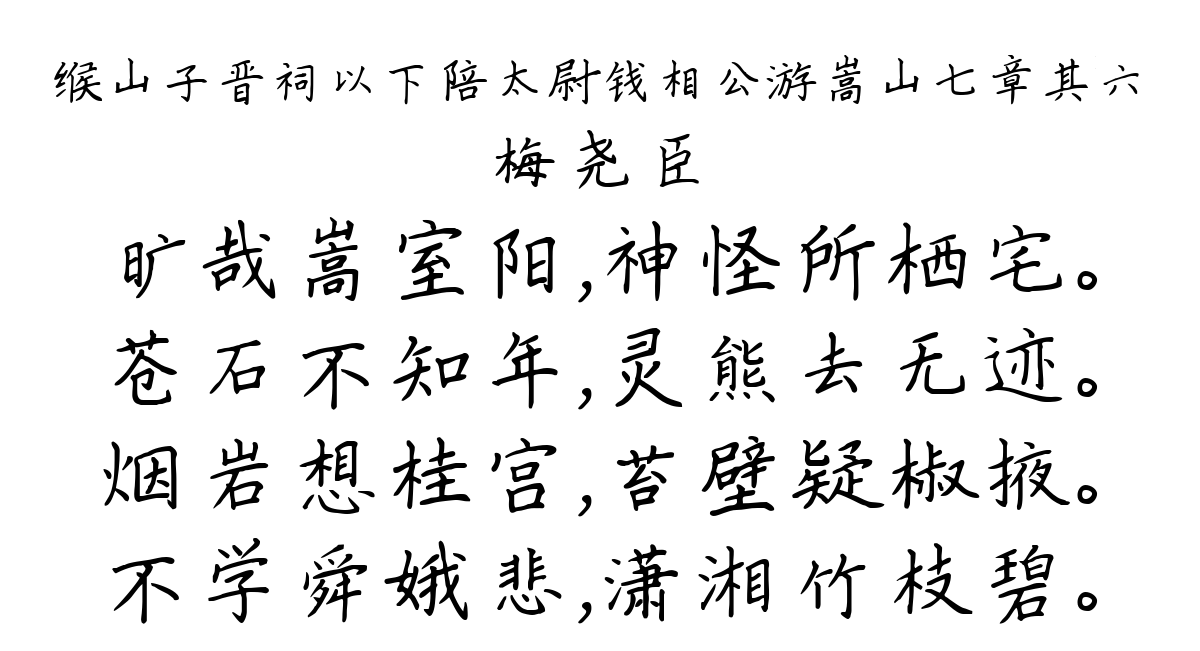 缑山子晋祠以下陪太尉钱相公游嵩山七章其六
梅尧臣
旷哉嵩室阳,神怪所栖宅。
苍石不知年,灵熊去无迹。
烟岩想桂宫,苔壁疑椒掖。
不学舜娥悲,潇湘竹枝碧。